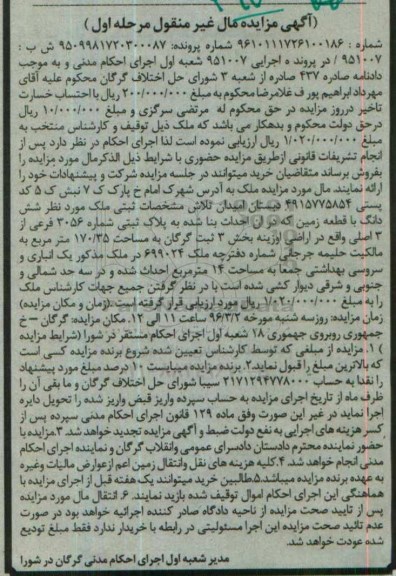 (آگهی مزایده مال غیر منقول مرحله اول )
شماره : ۹۶۱۰۱۱۱۷۲۶۱۰۰۱۸۶ شماره پرونده: ۹۵۰۹۹۸۱۷۲۰۳۰۰۰۸۷ ش ب :
۹۵۱۰۰۷ / در پرونده اجرایی ۹۵۱۰۰۷ شعبه اول اجرای احکام مدنی و به موجب
دادنامه صادره ۴۳۷ صادره از شعبه ۳ شورای حل اختلاف گرگان محکوم علیه آقای
مهرداد ابراهیم پور ف غلامرضا محکوم به مبلغ ۲۰۰/۰۰۰/۰۰۰ ریال با احتساب خسارت
تاخیر در روز مزایده در حق محکوم له مرتضی سرگزی و مبلغ ۱۰/۰۰۰/۰۰۰ ریال
در حق دولت محکوم و بدهکار می باشد که ملک ذیل توقیف و کارشناس منتخب به
مبلغ ۱/۰۲۰/۰۰۰/۰۰۰ ریال ارزیابی نموده است لذا اجرای احکام در نظر دارد پس از
انجام تشریفات قانونی از طریق مزایده حضوری با شرایط ذیل الذکر مال مورد مزایده را
بفروش برساند متقاضیان خرید میتوانند در جلسه مزایده شرکت و پیشنهادات خود را
ارائه نمایند. مال مورد مزایده ملک به آدرس شهرک امام خ پارک ک ۷ نبش ک ۵ کد
پستی ۴۹۱۵۷۷۵۸۵۴ دبستان امیدان تلاش مشخصات ثبتی ملک مورد نظر شش
دانگ با قطعه زمین که در آن احداث بنا شده به پلاک ثبتی شماره ۳۰۵۶ فرعی از
۳ اصلی واقع در اراضی اوزینه بخش ۳ ثبت گرگان به مساحت ۱۷۰/۳۵ متر مربع به
مالکیت حلیمه جرجانی شماره دفترچه ملک ۶۹۹۰۲۴ در ملک مذکور یک انباری و
سرویس بهداشتی جمعا به مساحت ۱۴ مترمربع احداث شده و در سه حد شمالی و
جنوبی و شرقی دیوار کشی شده است با در نظر گرفتن جمیع جهات کارشناس ملک
را به مبلغ ۱/۰۲۰/۰۰۰/۰۰۰ ریال مورد ارزیابی قرار گرفته است (زمان و مکان مزایده)
زمان مزایده: روز سه شنبه مورخه ۹۶/۳/۲ ساعت ۱۱ الی ۱۲. مکان مزایده: گرگان – خ
جمهوری روبروی جمهوری ۱۸ شعبه اول اجرای احکام مستقر در شورا (شرایط مزایده
) ۱. مزایده از مبلغی که توسط کارشناس تعیین شده شروع برنده مزایده کسی است
که بالاترین مبلغ را قبول نماید.۲. برنده مزایده میبایست ۱۰ درصد مبلغ مورد پیشنهاد
را نقدا به حساب ۲۱۷۱۲۹۴۷۷۸۰۰۰ سیبا شورای حل اختلاف گرگان و مابقی آن را
ظرف ماه از تاریخ اجرای مزایده به حساب سپرده واریز قبض واریز شده را تحویل دایره
اجرا نماید در غیر این صورت وفق ماده ۱۲۹ قانون اجرای احکام مدنی سپرده پس از
کسر هزینه های اجرایی به نفع دولت ضبط و آگهی مزایده تجدید خواهد شد. ۳.مزایده با
حضور نماینده محترم دادستان دادسرای عمومی وانقلاب گرگان و نماینده اجرای احکام
مدنی انجام خواهد شد. ۴.کلیه هزینه های نقل وانتقال زمین اعم از عوارض مالیات وغیره
به عهده برنده مزایده میباشد.۵.طالبین خرید میتوانند یک هفته قبل از اجرای مزایده با
هماهنگی این اجرای احکام اموال توقیف شده بازدید نمایند. ۶. انتقال مال مورد مزایده
پس از تایید صحت مزایده از ناحیه دادگاه صادر کننده اجرائیه خواهد بود در صورت
عدم تائید صحت مزایده این اجرا مسئولیتی در رابطه با خریدار ندارد فقط مبلغ تودیع
شده عودت خواهد شد.
مدیر شعبه اول اجرای احکام مدنی گرگان در شورا